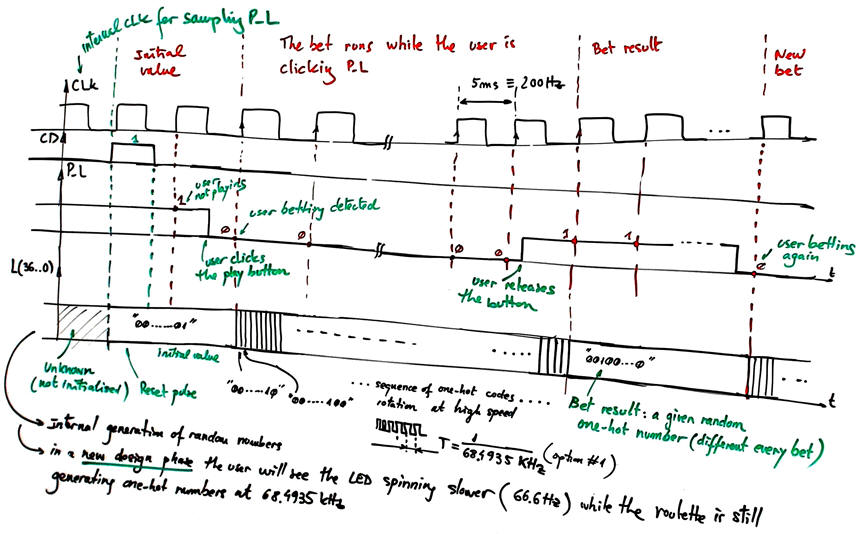 internal CLK for sampling P_L
Initial
value
The bet runs while the user is
clicking P_L
Bet result
New
bet
5ms ≡ 200Hz
CLK
CD
1
...
P_L
1
user
not playing
user betting detected
ø
ø
user clicks
the play button
ø
ø
user releases
the button
1
1
ø
user betting
again
t
L(36..0)
"00.....01"
initial value
"00100...0"
Unknown
(not initialised)
Reset pulse
"00.....10"
"00.....100"
... sequence of one-hot codes ....
rotation at high speed
t
Bet result: a given random
one-hot number (different every bet)
Internal generation of random numbers
T = 1 / 68.4935 KHz (option #1)
in a new design phase the user will see the LED spinning slower (66.6Hz) while the roulette is still
generating one-hot numbers at 68.4935 kHz